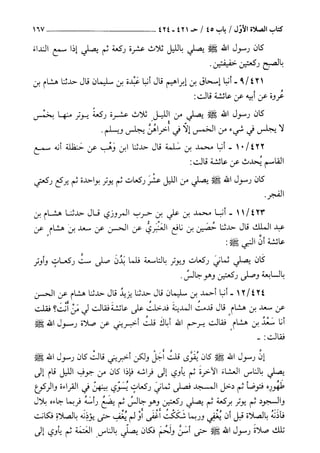 كتاب الصلاة الأوّل / باب ٤٥ / حـ ٤٢١ - ٤٢٤ ١٦٧
كان رسول الله ﷺ يصلي بالليل ثلاث عشرة ركعة ثم يصلي إذا سمع النداء
بالصبح ركعتين خفيفتين.
٩/٤٢١ - أنبا إسحاق بن إبراهيم قال أنبا عَبْدة بن سليمان قال حدثنا هشام بن
عُروة عن أبيه عن عائشة قالت:
كان رسول الله ﷺ يصلي من الليل ثلاث عشرة ركعةً يوتر منها بخمْس
لا يجلس في شيء من الخمس إلّا في أخراهُنَّ يجلس ويسلم.
١٠/٤٢٢ - أنبا محمد بن سَلمة قال حدثنا ابن وَهْب عن حَنظلة أنه سمع
القاسم يُحدث عن عائشة قالت:
كان رسول الله ﷺ يصلي من الليل عَشْرَ ركعات ثم يوتر بواحدة ثم يركع ركعتي
الفجر.
١١/٤٢٣ - أنبا محمد بن علي بن حرب المروزي قال حدثنا هشام بن
عبد الملك قال حدثنا حُصَين بن نافع العَنْبَريُّ عن الحسن عن سعد بن هشام عن
عائشة أنَّ النبي ﷺ:
كان يصلي ثماني ركعات ويوتر بالتاسعة فلما بَدُنَ صلى ستَّ ركعات وأوتر
بالسابعة وصلى ركعتين وهو جالسٌ.
١٢/٤٢٤ - أنبا أحمد بن سليمان قال حدثنا يزيدُ قال حدثنا هشام عن الحسن
عن سعد بن هشام قال قدمتُ المدينة فدخلتُ على عائشة فقالت لي مَنْ أنْتَ؟ فقلت
أنا سَعْدُ بن هشام فقالت يرحم الله أباك قلتُ أخبريني عن صلاة رسول الله ﷺ
فقالت: -
إنَّ رسول الله ﷺ كان يُقْوَى قلتُ أجَلْ ولكن أخبريني قالتْ كان رسول الله ﷺ
يصلي بالناس العشاءَ الآخرةَ ثم يأوي إلى فراشه فإذا كان من جوفِ الليل قام إلى
طَهُورِه فتوضأ ثم دخل المسجد فصلى ثماني ركعاتٍ يُسَوِّي بينهنَّ في القراءة والركوع
والسجود ثم يوتر بركعة ثم يصلي ركعتين وهو جالسٌ ثم يضعُ رأسَهُ فربما جاءه بلال
فآذنَهُ بالصلاة قبل أن يُغْفِي وربما شَكَكْتُ أغْفَى أوْ لم يُغْفِ حتى يؤذِنَه بالصلاةِ فكانت
تلك صلاةَ رسول الله ﷺ حتى أسَنَّ ولَحُمَ فكان يصلّي بالناس العَتَمَةَ ثم يأوي إلى